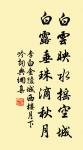 白雲映水搖空城
白露垂珠滴秋月
李白金陵城西樓月下
吟詩典撰集